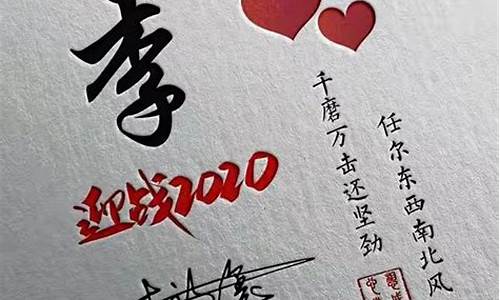 李
迎战2020
千磨万击还坚劲
任尔东西南北风